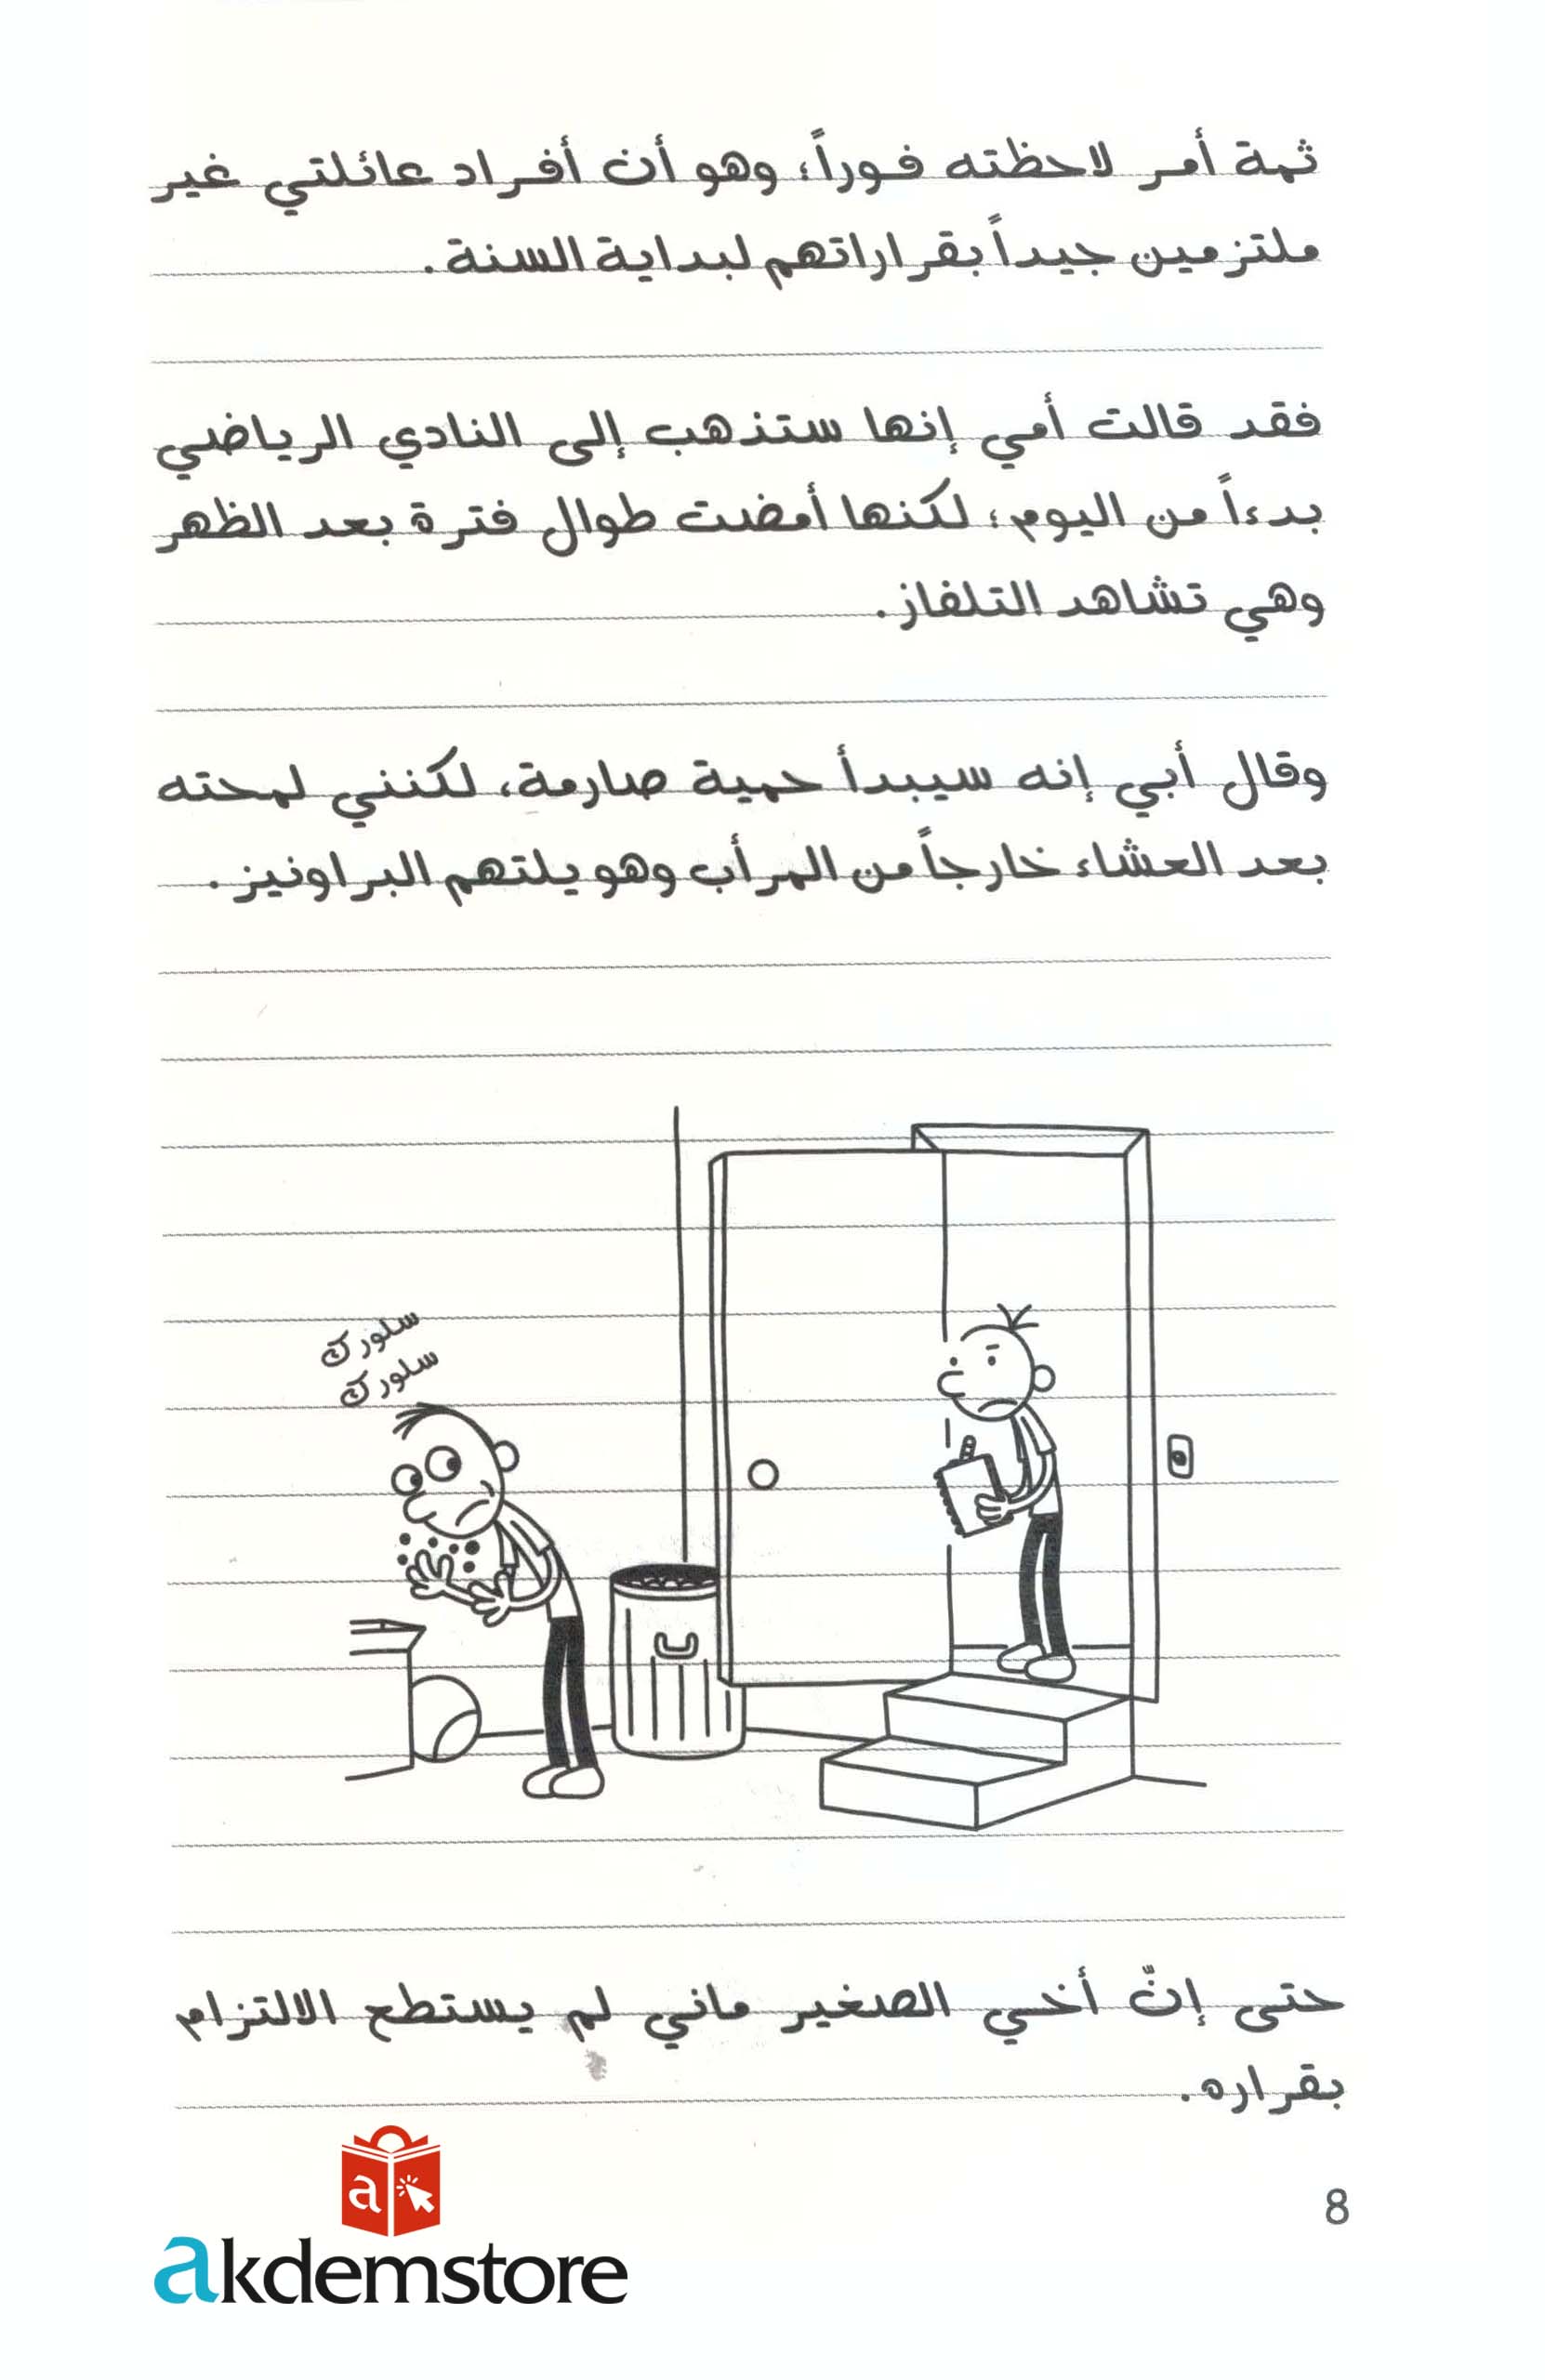 ثمة أمر لاحظته فوراً، وهو أن أفراد عائلتي غير
ملتزمين جيداً بقراراتهم لبداية السنة.
فقد قالت أمي إنها ستذهب إلى النادي الرياضي
بدءاً من اليوم، لكنها أمضت طوال فترة بعد الظهر
وهي تشاهد التلفاز.
وقال أبي إنه سيبدأ حمية صارمة، لكنني لمحته
بعد العشاء خارجاً من المرأب وهو يلتهم البراونيز.
سلورك
سلورك
حتى إنّ أخي الصغير ماني لم يستطع الالتزام
بقراره.
8
a
akdemstore